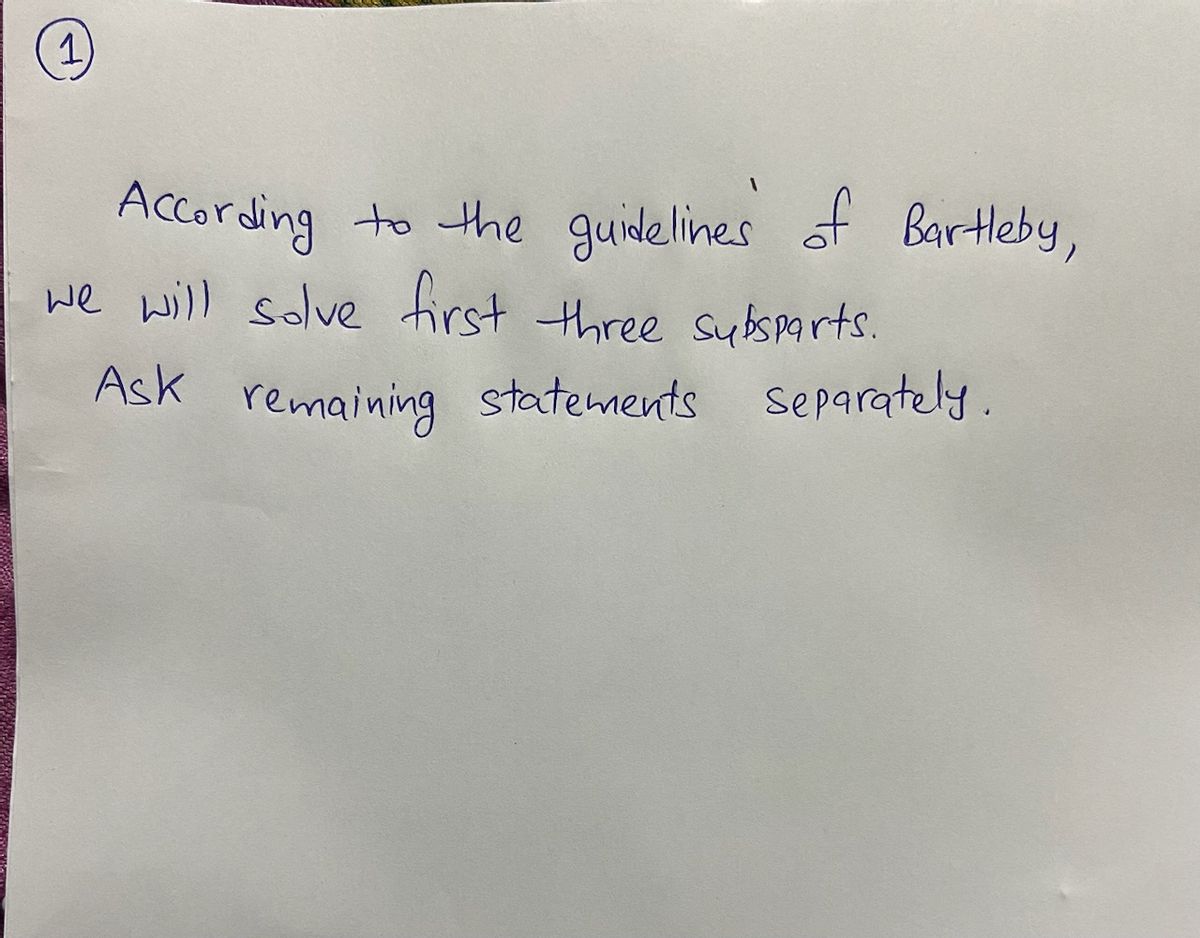 1
According to the guidelines of Bartleby,
we will solve first three subsparts.
Ask remaining statements separately.